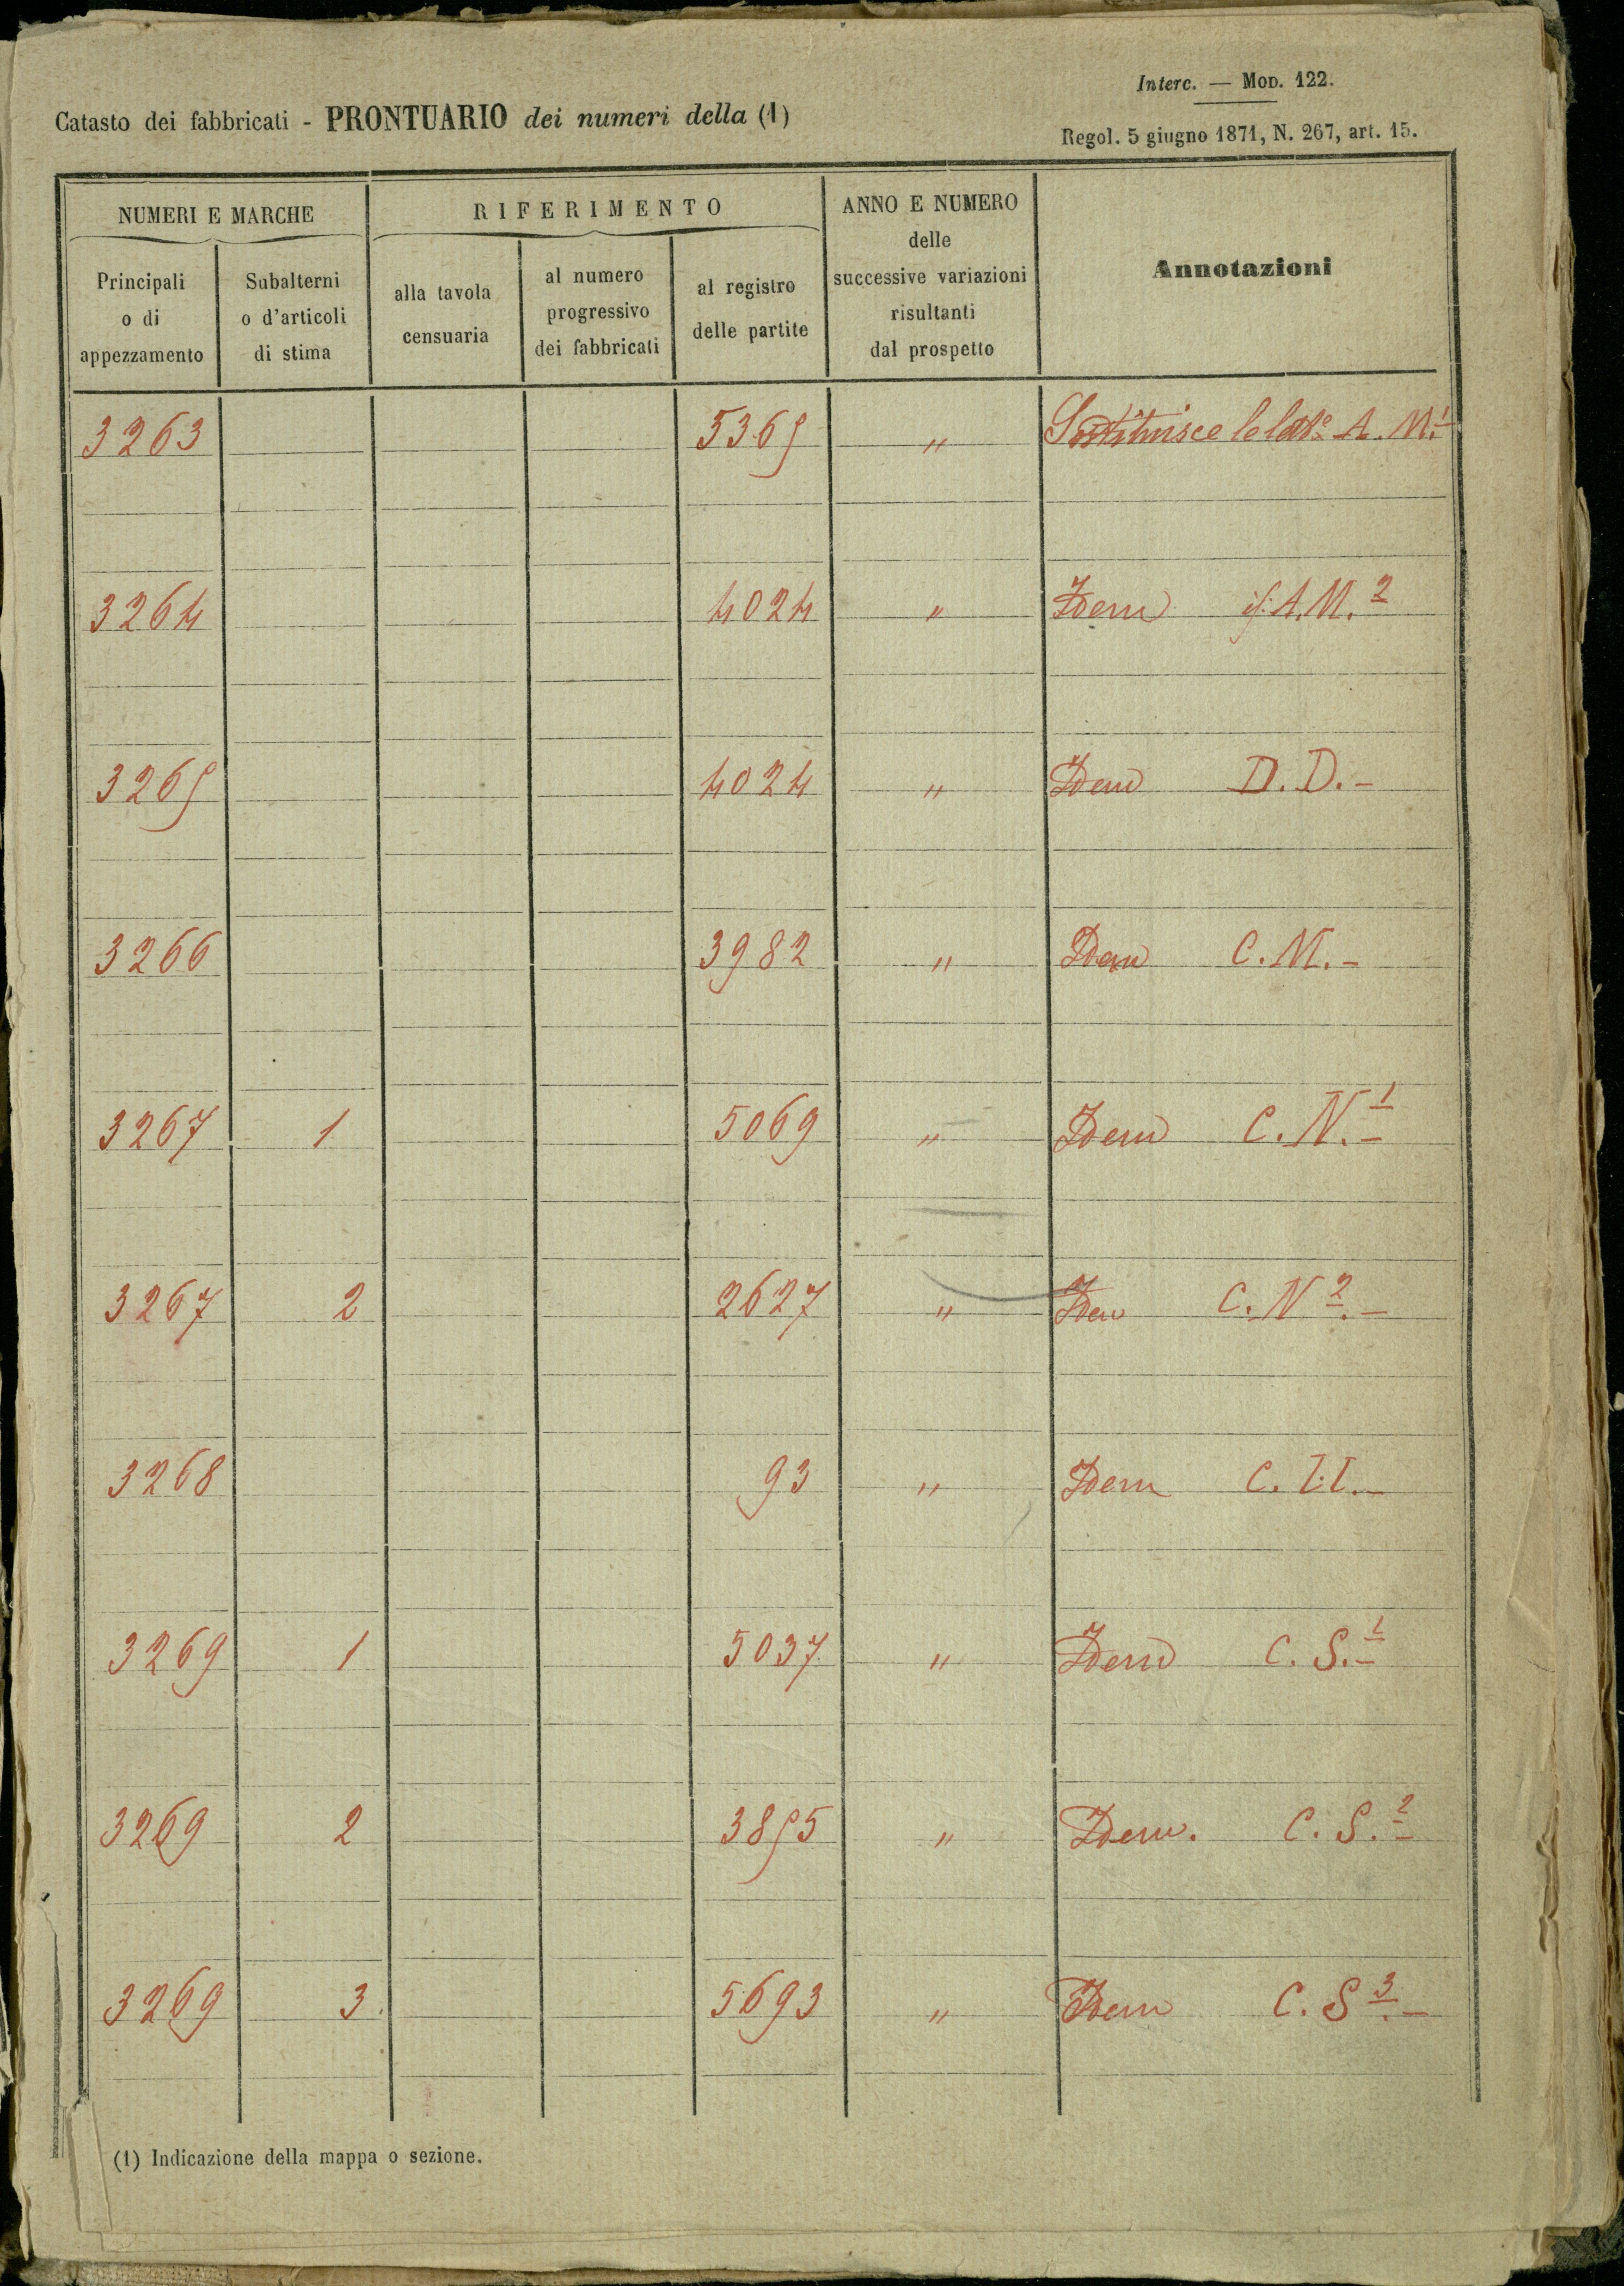 Interc. — Mod. 122.
Catasto dei fabbricati - PRONTUARIO dei numeri della (1)
Regol. 5 giugno 1871, N. 267, art. 15.
NUMERI E MARCHE
RIFERIMENTO
ANNO E NUMERO
delle
successive variazioni
risultanti
dal prospetto
Annotazioni
Principali
o di
appezzamento
Subalterni
o d'articoli
di stima
alla tavola
censuaria
al numero
progressivo
dei fabbricati
al registro
delle partite
3263 5365 " Sostituisce le A. M. 1
3264 4024 " Idem A. M. 2
3265 4024 " Idem D. D. -
3266 3982 " Idem C. M. -
3267 1 5069 " Idem C. N. 1
3267 2 2627 " Idem C. N 2. -
3268 93 " Idem C.
3269 1 5037 " Idem C. S. 1
3269 2 3855 " Idem. C. S. 2
3269 3. 5693 " Idem C. S 3. -
(1) Indicazione della mappa o sezione.